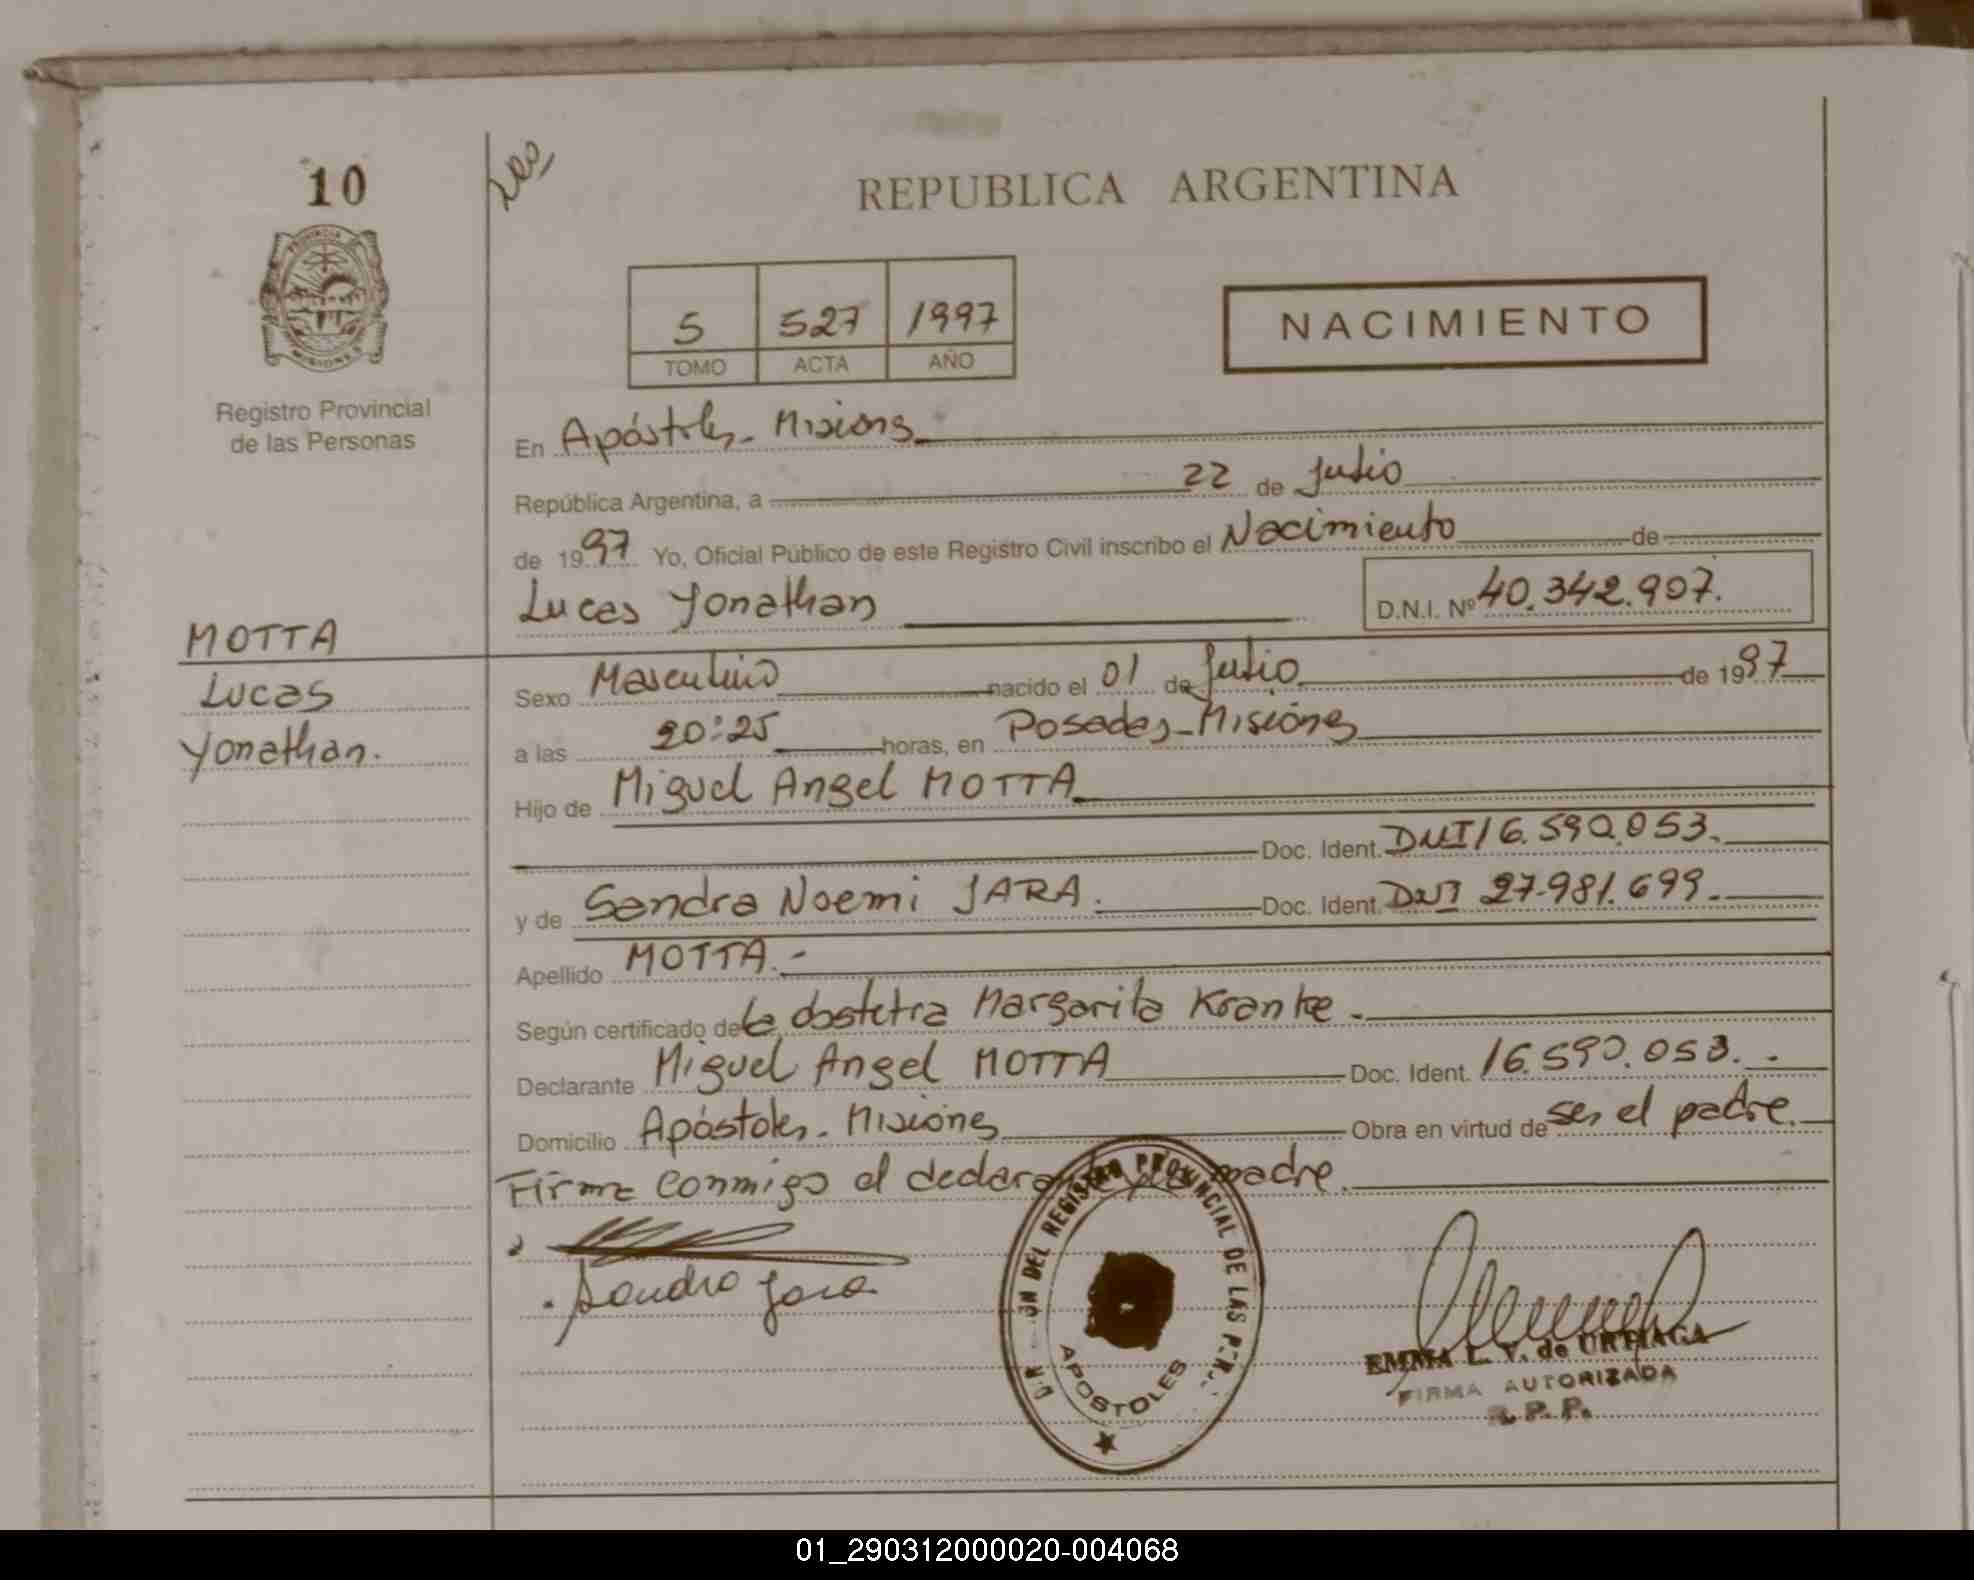 10
REPUBLICA ARGENTINA
PROVINCIA DE
MISIONES
5 527 1997
TOMO ACTA AÑO
NACIMIENTO
Registro Provincial
de las Personas
En Apóstoles - Misiones
República Argentina, a 22 de Julio
de 1997 Yo, Oficial Público de este Registro Civil inscribo el Nacimiento de
Lucas Yonathan D.N.I. Nº 40.342.907.
MOTTA
Lucas
Yonathan.
Sexo Masculino nacido el 01 de Julio de 1997
a las 20:25 horas, en Posadas - Misiones
Hijo de Miguel Angel MOTTA
Doc. Ident. DNI 16.590.053.
y de Sandra Noemi JARA. Doc. Ident. DNI 27.981.699.
Apellido MOTTA.-
Según certificado de la obstetra Margarita Kranke.
Declarante Miguel Angel MOTTA Doc. Ident. 16.590.053.
Domicilio Apóstoles - Misiones Obra en virtud de ser el padre.
Firma conmigo el declarante y la madre.
Sandra Jara
DEL REGISTRO PROVINCIAL DE LAS PER
APOSTOLES
EMMA L. V. de URTIAGA
FIRMA AUTORIZADA
R. P. P.
01_290312000020-004068